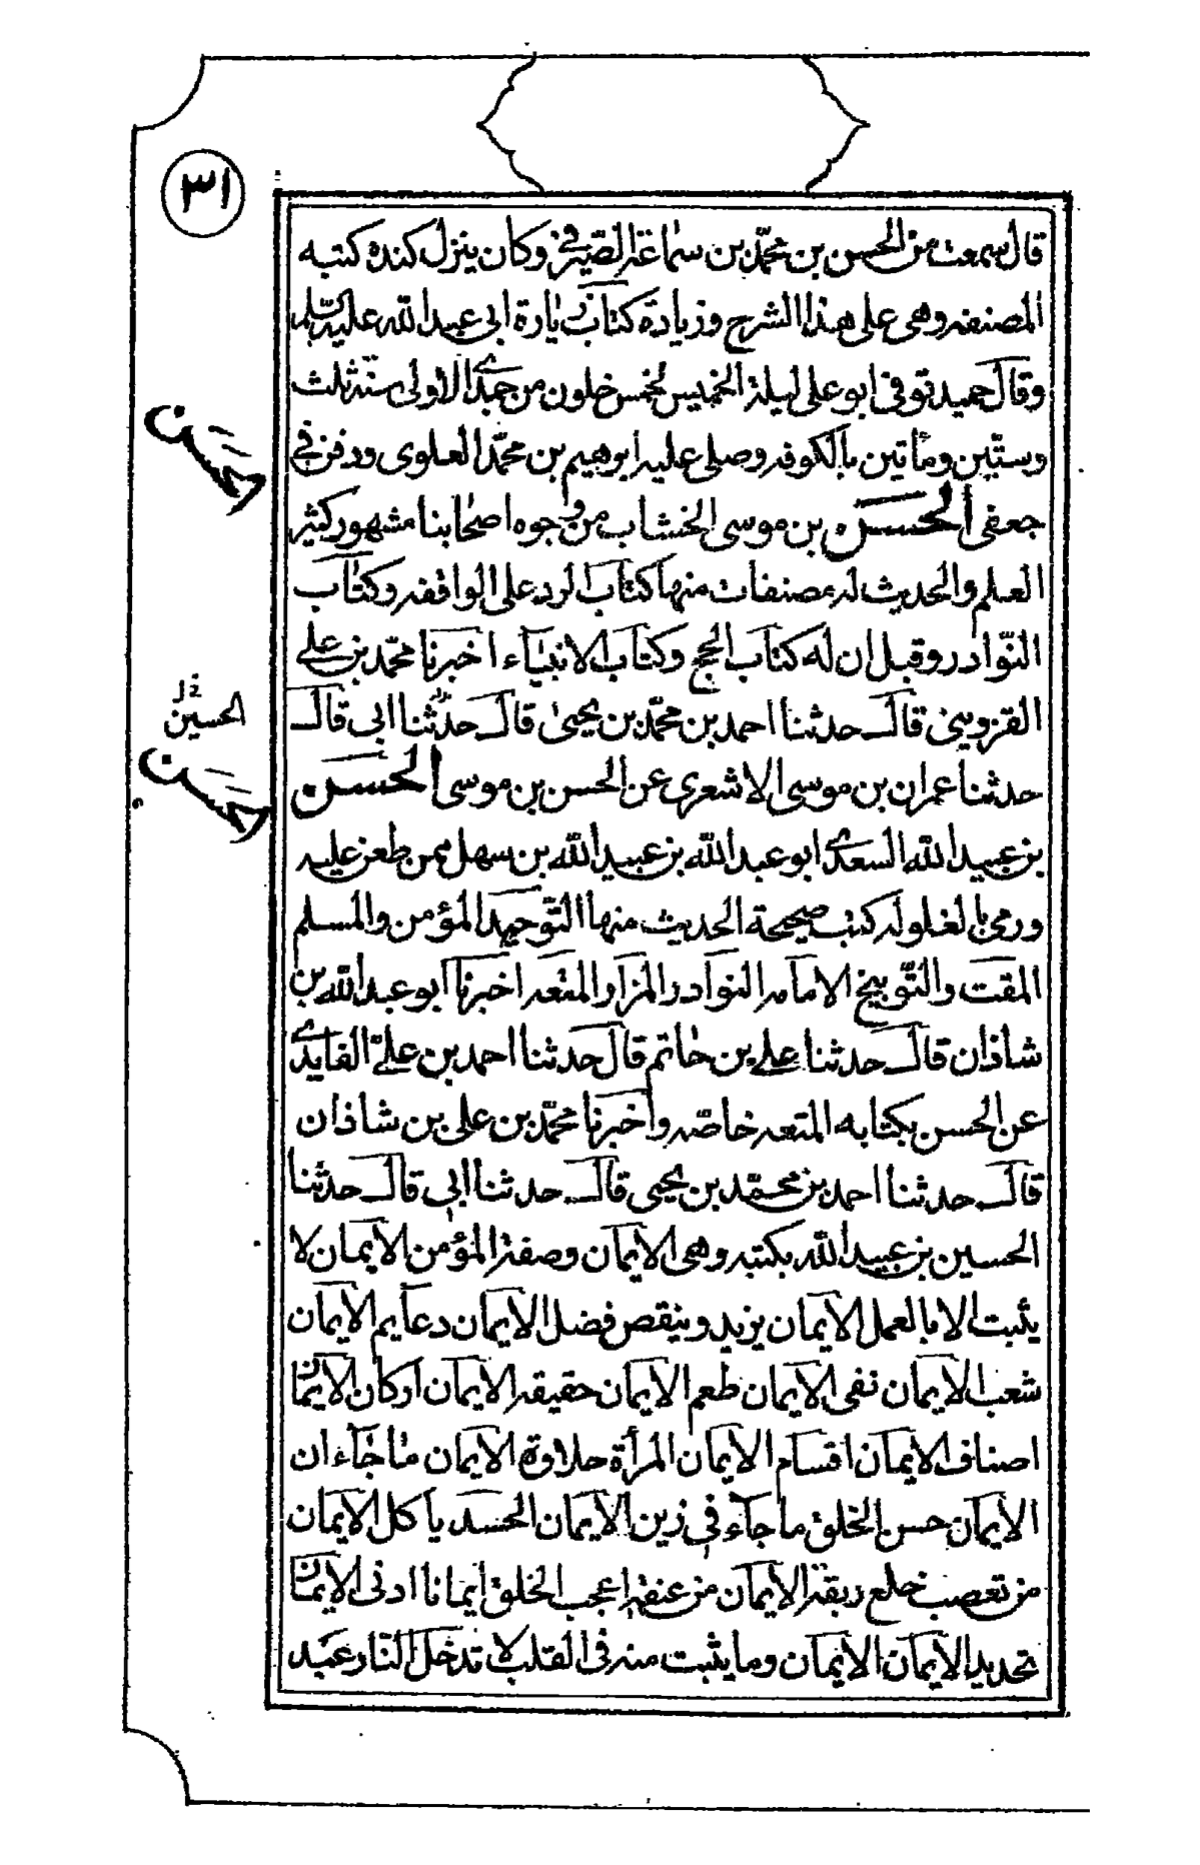 ٣١
قال سمعت من الحسن بن محمّد بن سماعة الصيرفي وكان ينزل كنده كتبه
المصنفه وهى على هذا الشرح وزيادة كتاب زيارة ابى عبد الله عليه السلم
وقال حميد توفى ابو على ليلة الخميس لخمس خلون من جمدى الاولى سنة ثلث
وستّين ومأتين بالكوفه وصلى عليه ابرهيم بن محمّد العلوى ودفن في
جعفى الحسن بن موسى الخشاب من وجوه اصحابنا مشهور كثير
العلم والحديث له مصنفات منها كتاب الرد على الواقفه وكتاب
النّوادر وقيل ان له كتاب الحج وكتاب الانبياء اخبرنا محمّد بن علي
القزوينى قال حدثنا احمد بن محمّد بن يحيى قال حدّثنا ابى قال
حدثنا عمران بن موسى الاشعرى عن الحسن بن موسى الحسن
بن عبيد الله السعدى ابو عبد الله بن عبيد الله بن سهل ممن طعن عليه
ورمى بالغلو له كتب صحيحة الحديث منها التّوحيد المؤمن والمسلم
المقت والتّوبيخ الامامه النوادر المزار المتعه اخبرنا ابو عبد الله بن
شاذان قال حدثنا علي بن حاتم قال حدثنا احمد بن عليّ الفايدى
عن الحسن بكتابه المتعه خاصّه واخبرنا محمّد بن على بن شاذان
قال حدثنا احمد بن محمّد بن يحيى قال حدثنا ابى قال حدثنا
الحسين بن عبيد الله بكتبه وهى الايمان وصفة المؤمن الايمان لا
يثبت الا بالعمل الايمان يزيد وينقص فضل الايمان دعايم الايمان
شعب الايمان نفى الايمان طعم الايمان حقيقه الايمان اركان الايمان
اصناف الايمان اقسام الايمان المرأة حلاوة الايمان ما جاء ان
الايمان حسن الخلق ما جاء في زين الايمان الحسد ياكل الايمان
من تعصب خلع ربقة الايمان من عنقه اعجب الخلق ايمانا ادنى الايمان
تحديد الايمان الايمان وما يثبت منه فى القلب لا تدخل النّار عبد
الحسن
الحسين
الحسن